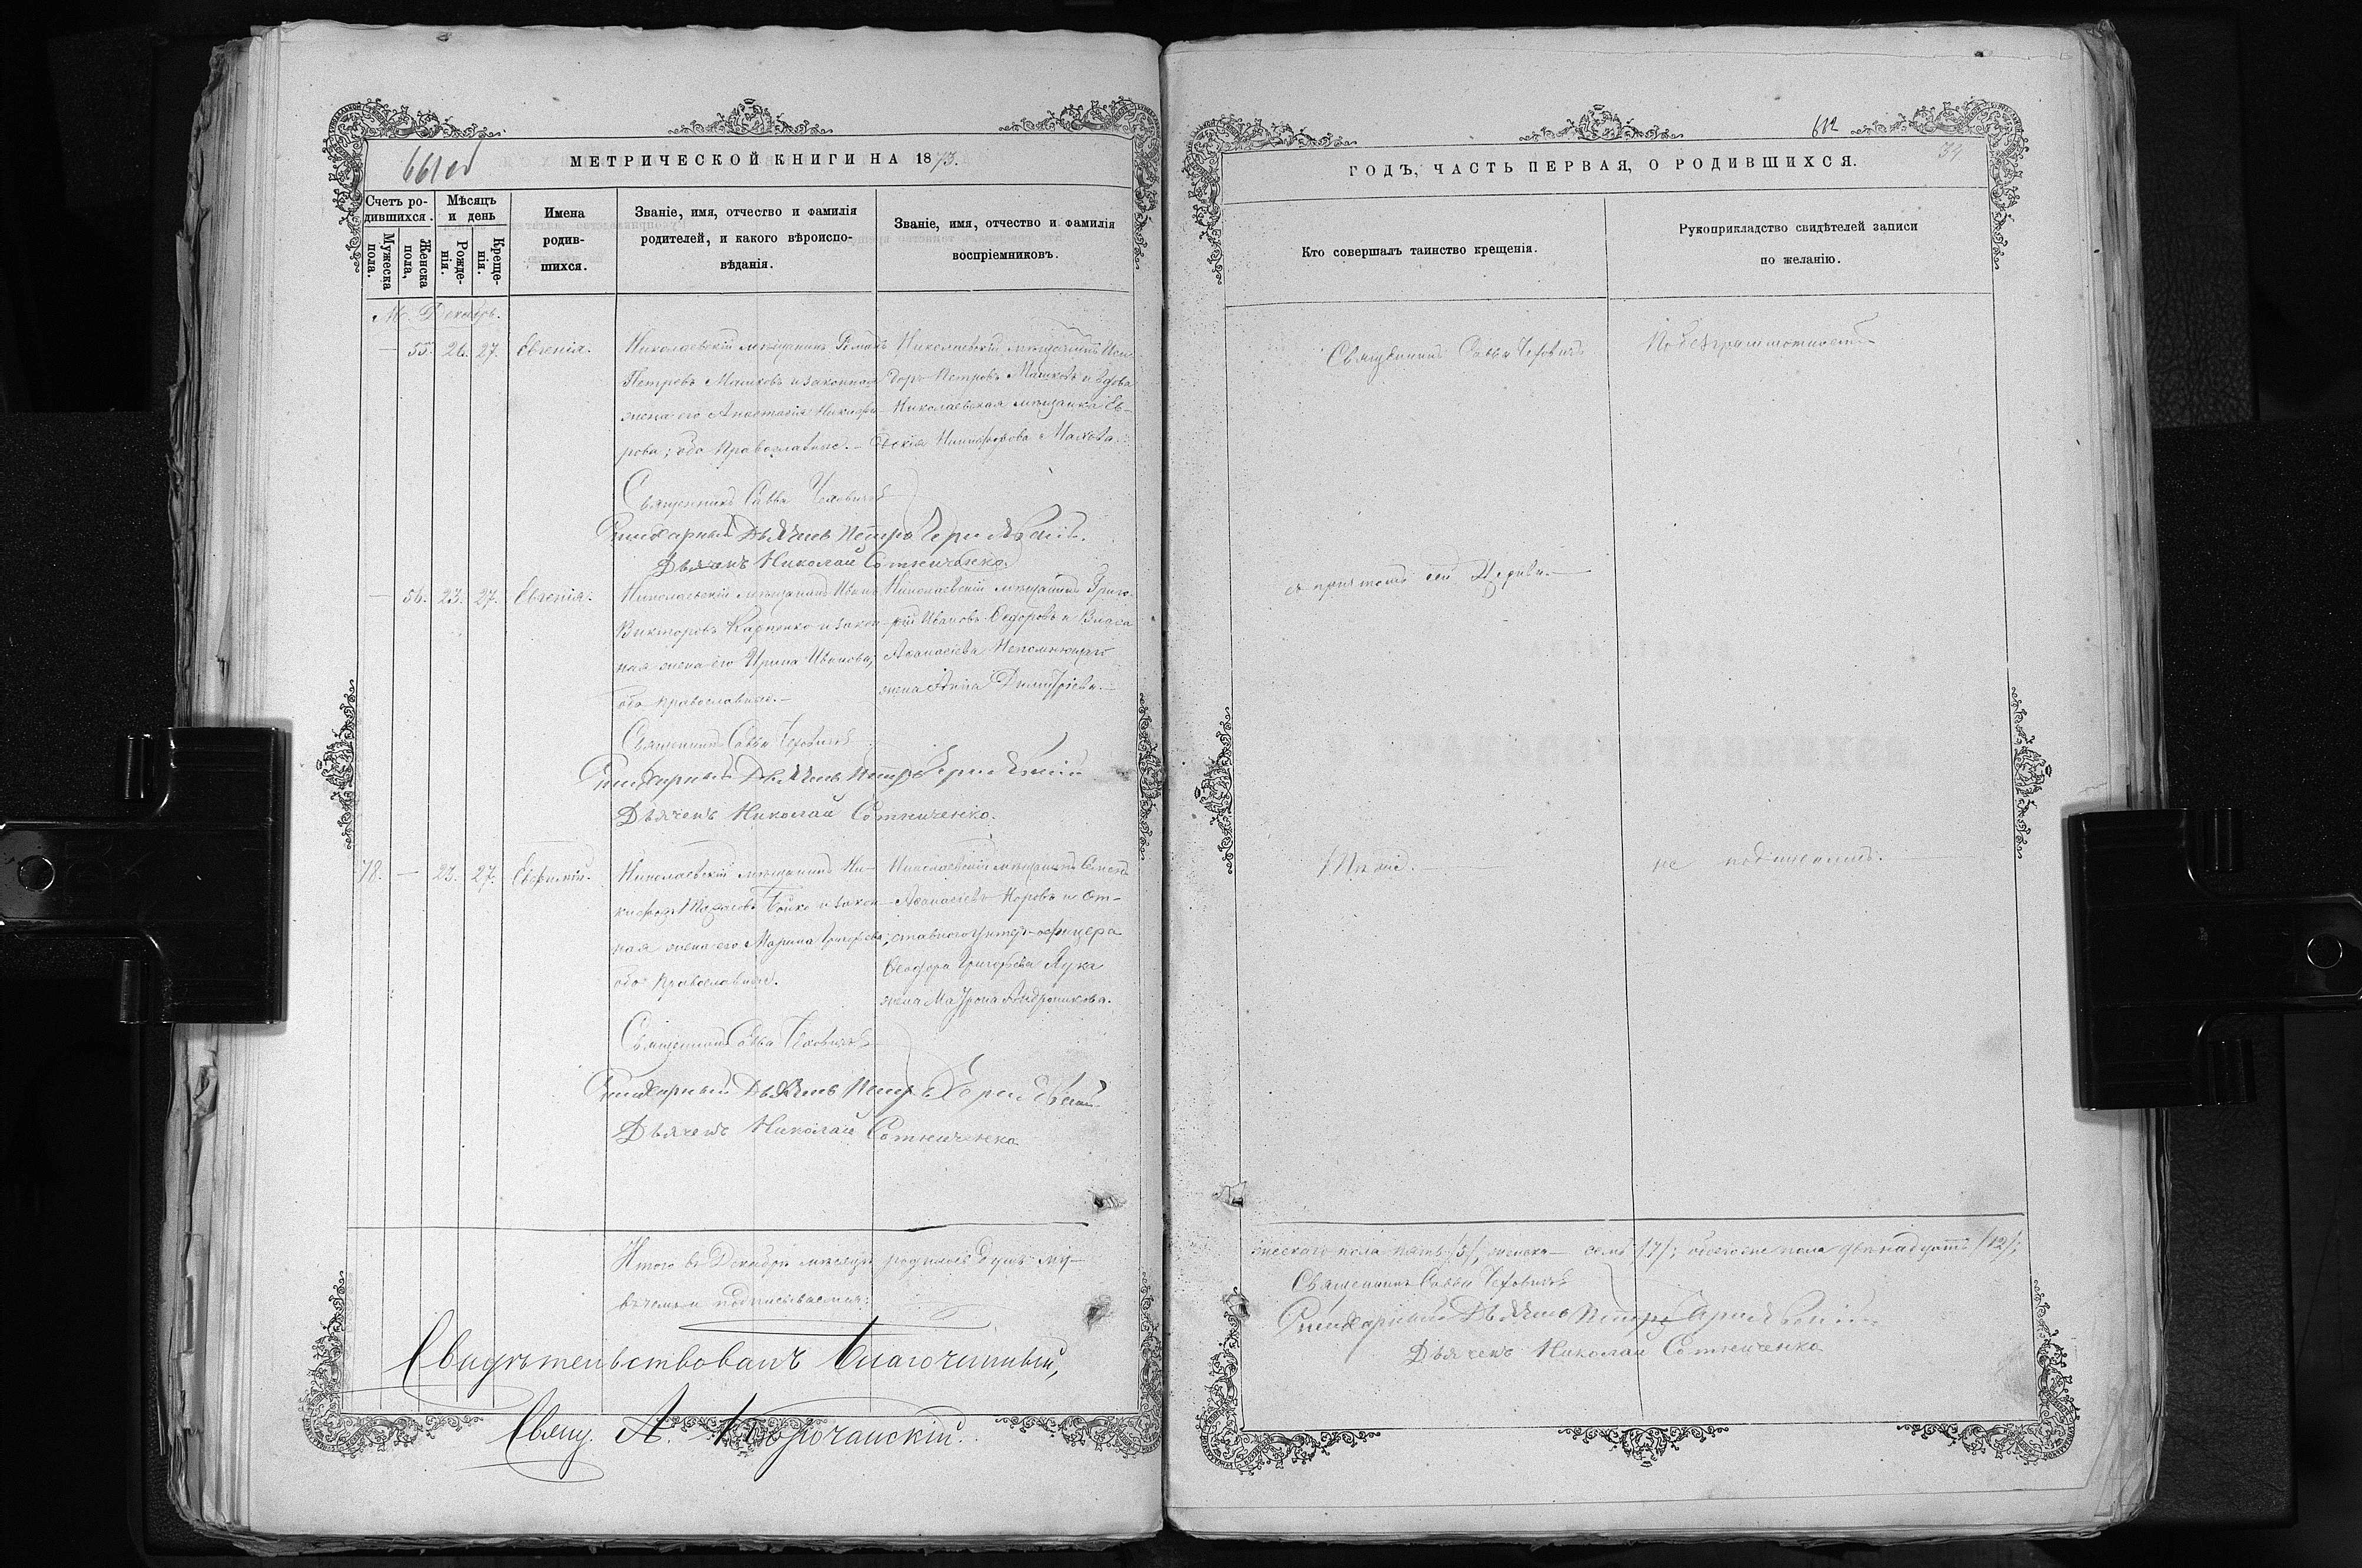 661 об
МЕТРИЧЕСКОЙ КНИГИ НА 1873.
Счетъ ро-
дившихся.
Мужеска
пола.
Женска
пола,
Мѣсяцъ
и день
Рожде-
нія.
Креще-
нія.
Имена
родив-
шихся.
Званіе, имя, отчество и фамилія
родителей, и какого вѣроиспо-
вѣданія.
Званіе, имя, отчество и фамилія
воспріемниковъ.
М. Декабрь.
— 55. 26. 27. Евгенія.
Николаевскій мѣщанинъ Романъ
Петровъ Машковъ и законная
жена его Анастасія Никифо-
рова; оба православные.—
Николаевскій мѣщанинъ Иси-
доръ Петровъ Машковъ и вдова
Николаевская мѣщанка Ев-
Никифорова
Священникъ Савва Чеховичъ
Стихарный Дьячекъ Петръ
Дьячекъ Николай Сотниченко.
— 56. 23. 27. Евгенія.
Николаевскій мѣщанинъ Иванъ
Викторовъ Карпенко и закон-
ная жена его Ирина Иванова;
оба православные.—
Николаевскій мѣщанинъ Григо-
рій Ивановъ Федоровъ и Власа
Аѳанасіева Непомнющаго
жена Анна Димитріева.—
Священникъ Савва Чеховичъ
Стихарный Дьячекъ Петръ
Дьячекъ Николай Сотниченко.
78. — 23. 27. Евфимій.
Николаевскій мѣщанинъ Ни-
кифоръ Бойко и закон-
ная жена его Марина Григорьева;
оба православные.
Николаевскій мѣщанинъ Семенъ
Аѳанасіевъ и от-
ставного унтеръ-офицера
Ѳеодора Григорьева Лука
жена Матрона Андроникова.
Священникъ Савва Чеховичъ
Стихарный Дьячекъ Петръ
Дьячекъ Николай Сотниченко
Итого въ Декабрѣ мѣсяцѣ родилось душъ му-
въ чемъ и подписываемся:
Свидѣтельствовалъ Благочинный,
Свящ. А.
612
34
ГОДЪ, ЧАСТЬ ПЕРВАЯ, О РОДИВШИХСЯ.
Кто совершалъ таинство крещенія.
Рукоприкладство свидѣтелей записи
по желанію.
Священникъ Савва Чеховичъ
По безграмотности
съ причтомъ сей Церкви.—
Тѣ же.—
не подписались.—
жескаго пола пять /5/, женска— семь /7/; обоего же пола двѣнадцать /12/;
Священникъ Савва Чеховичъ
Стихарный Дьячекъ Петръ
Дьячекъ Николай Сотниченко